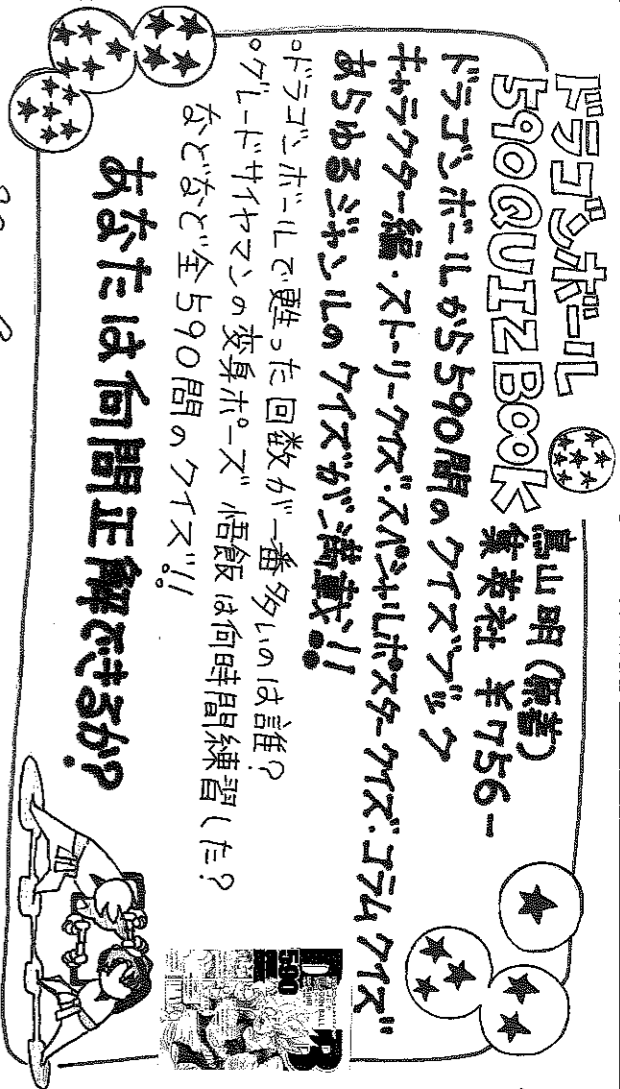 ドラゴンボール
590QUIZBook
鳥山明(原著)
集英社 ¥756-
ドラゴンボールから590問のクイズブック
キャラクター編・ストーリークイズ・スペシャルポスタークイズ・コラムクイズ
あらゆるジャンルのクイズが満載!!
○ドラゴンボールで甦った回数が一番多いのは誰?
○グレードサイヤマンの変身ポーズ 悟飯は何時間練習した?
などなど全590問のクイズ!!
あなたは何問正解できるか?
590